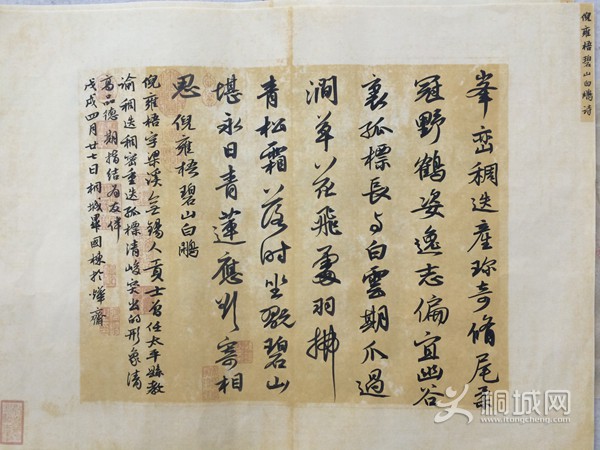 倪雍梧碧山白鷴诗
峯巒稠迭産珍奇脩尾
冠野鶴姿逸志偏宜幽谷
裏孤標長与白雲期爪過
澗草花飛處羽拂
青松霜落時坐翫碧山
堪永日青蓮應寄相
思 倪雍梧碧山白鷴
倪雍梧字梁溪無锡人貢士曾任太平縣教
諭稠迭稠密重迭孤標清峻突出的形象清
高品德期指結为友伴
戊戌四月廿七日桐城畢國棟於齋
桐城网
www.tongcheng.com